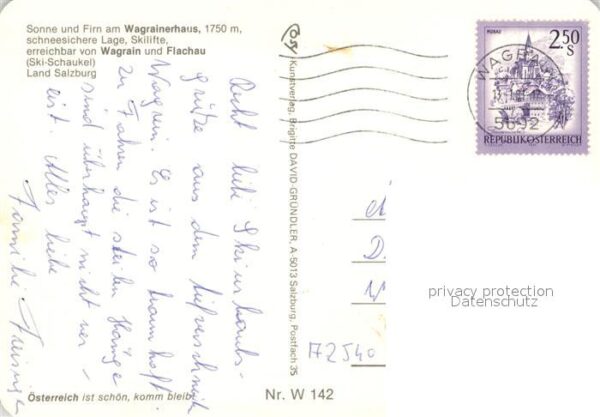 Sonne und Firn am Wagrainerhaus, 1750 m,
schneesichere Lage, Skilifte,
erreichbar von Wagrain und Flachau
(Ski-Schaukel)
Land Salzburg
Recht liebe Skiurlaubs-
grüße aus dem tiefverschneiten
Wagrain. Es ist so traumhaft
zu Fahren die steilen Hänge
sind überhaupt nicht ver-
eist. Alles liebe
Familie
Kunstverlag Brigitte DAVID-GRÜNDLER, A-5013 Salzburg, Postfach 35
MURAU
2.50
S
REPUBLIK ÖSTERREICH
WAGRAIN
5602
privacy protection
Datenschutz
A2540
Österreich ist schön, komm bleib!
Nr. W 142